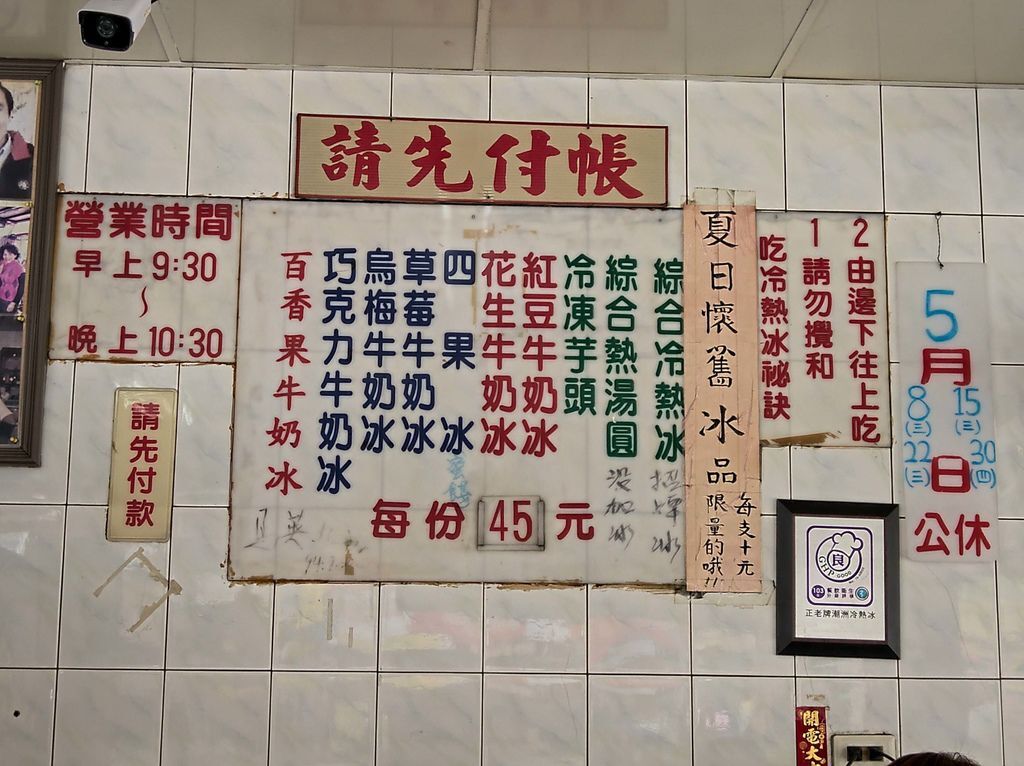 請先付帳
營業時間
早上9:30
~
晚上10:30
請先付款
綜合冷熱冰
綜合熱湯圓
沒加冰
冷凍芋頭
紅豆牛奶冰
花生牛奶冰
四果冰
草莓牛奶冰
烏梅牛奶冰
巧克力牛奶冰
百香果牛奶冰
每份45元
夏日懷舊冰品
每支十元
限量的哦!!
吃冷熱冰祕訣
1請勿攪和
2由邊下往上吃
5
月
8(三) 15(三)
22(三) 30(四)
日
公休
良
GHP GOOD
103
餐飲衛生
分級評核
正老牌潮洲冷熱冰
開電大